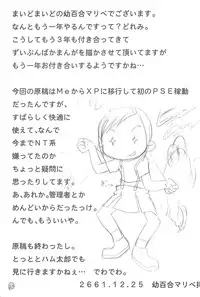 まいどまいどの幼百合マリベでございます。
なんともう一年やるんですって？どれみ。
こうしてもう３年も付き合ってきて
ずいぶんばかまんがを描かさせて頂いてますが
もう一年お付き合いするようですかね…
今回の原稿はＭｅからＸＰに移行して初のＰＳＥ稼動
だったんですが、
すばらしく快適に
使えて、なんで
今までＮＴ系
嫌ってたのか
ちょっと疑問に
思ったりしてます。
あ、あれか。管理者とか
めんどいからだったっけ。
んでも、もういいや。
原稿も終わったし。
とっととハム太郎でも
見に行きますかねぇ…　でわでわ。
２６６１．１２．２５　幼百合マリベ拝